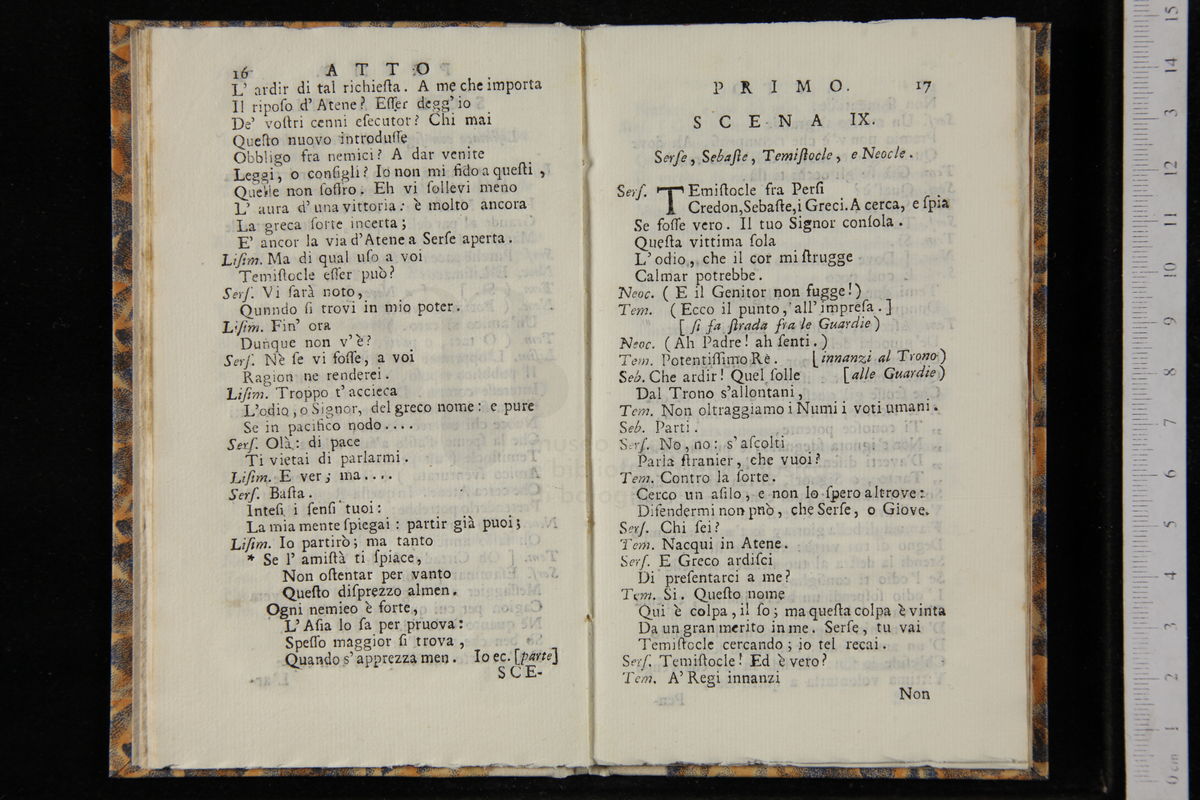 16 ATTO
L' ardir di tal richieſta. A me che importa
Il ripoſo d' Atene? Eſſer degg' io
De' voſtri cenni eſecutor? Chi mai
Queſto nuovo introduſſe
Obbligo fra nemici? A dar venite
Leggi, o conſigli? Io non mi fido a queſti,
Quelle non ſoffro. Eh vi ſollevi meno
L' aura d' una vittoria: è molto ancora
La greca ſorte incerta;
E' ancor la via d'Atene a Serſe aperta.
Liſim. Ma di qual uſo a voi
Temiſtocle eſſer può?
Serſ. Vi ſarà noto,
Qunndo ſi trovi in mio poter.
Liſim. Fin' ora
Dunque non v'è?
Serſ. Nè ſe vi foſſe, a voi
Ragion ne renderei.
Liſim. Troppo t' accieca
L'odio, o Signor, del greco nome: e pure
Se in pacifico nodo....
Serſ. Olà: di pace
Ti vietai di parlarmi.
Liſim. E ver; ma....
Serſ. Baſta.
Inteſi i ſenſi tuoi:
La mia mente ſpiegai: partir già puoi;
Liſim. Io partirò; ma tanto
* Se l' amiſtà ti ſpiace,
Non oſtentar per vanto
Queſto diſprezzo almen.
Ogni nemieo è forte,
L' Aſia lo ſa per pruova:
Speſſo maggior ſi trova,
Quando s' apprezza men. Io ec. [parte]
SCE-
PRIMO. 17
SCENA IX.
Serſe, Sebaſte, Temiſtocle, e Neocle.
Serſ. TEmiſtocle fra Perſi
Credon, Sebaſte, i Greci. A cerca, e ſpia
Se foſſe vero. Il tuo Signor conſola.
Queſta vittima ſola
L' odio, che il cor mi ſtrugge
Calmar potrebbe.
Neoc. (E il Genitor non fugge!)
Tem. (Ecco il punto, all' impreſa.]
[ſi fa ſtrada fra le Guardie)
Neoc. (Ah Padre! ah ſenti.)
Tem. Potentiſſimo Rè. [innanzi al Trono)
Seb. Che ardir! Quel folle [alle Guardie)
Dal Trono s'allontani,
Tem. Non oltraggiamo i Numi i voti umani.
Seb. Parti.
Serſ. No, no: s' aſcolti
Parla ſtranier, che vuoi?
Tem. Contro la ſorte.
Cerco un aſilo, e non lo ſpero altrove:
Difendermi non pnò, che Serſe, o Giove.
Serſ. Chi ſei?
Tem. Nacqui in Atene.
Serſ. E Greco ardiſci
Di preſentarci a me?
Tem. Si. Queſto nome
Qui è colpa, il ſo; ma queſta colpa è vinta
Da un gran merito in me. Serſe, tu vai
Temiſtocle cercando; io tel recai.
Serſ. Temiſtocle! Ed è vero?
Tem. A' Regi innanzi
Non